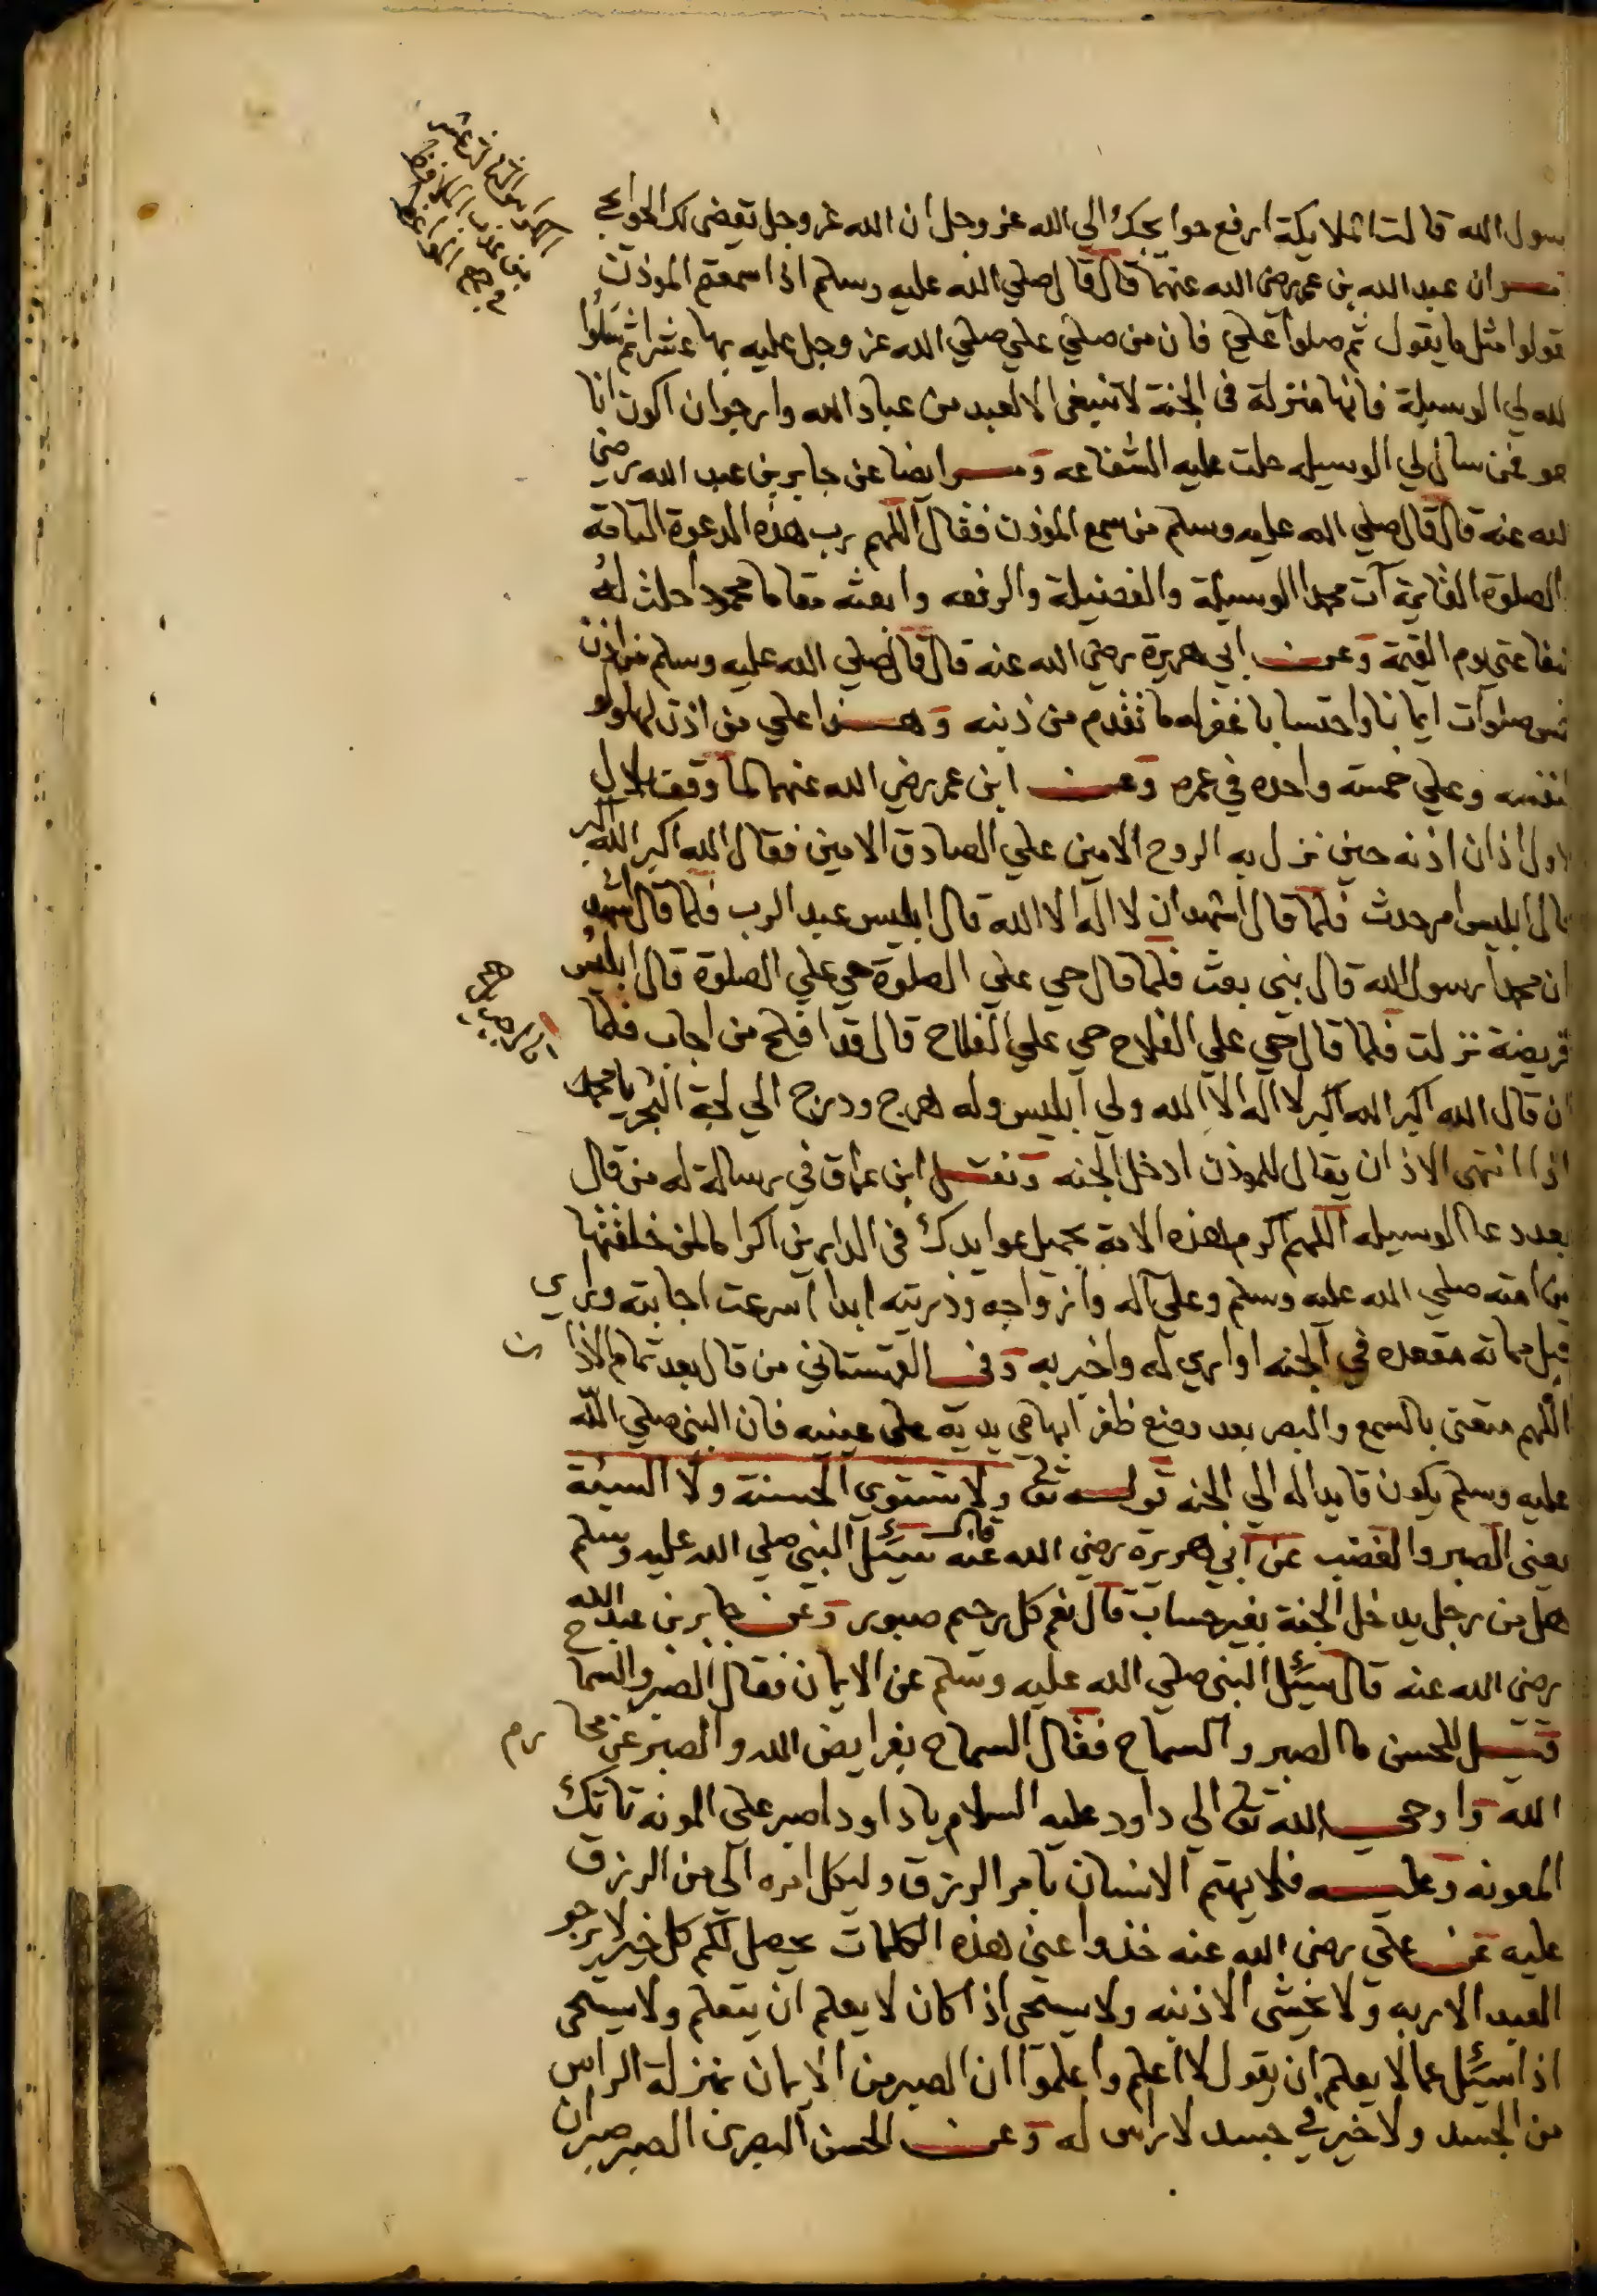 سول الله قالت الملايكة ارفع حوايجك الي الله عز وجل ان الله عز وجل يقضي لك الحوايج
ان عبد الله بن عمر رضي الله عنهما قال قال صلي الله عليه وسلم اذا سمعتم الموذن
قولوا مثل ما يقول ثم صلوا علي فان من صلي علي صلي الله عز وجل عليه بها عشرا ثم سلوا
لله لي الوسيلة فانها منزلة في الجنة لا تنبغي الا لعبد من عباد الله وارجوان اكون انا
هو فمن سال لي الوسيله حلت عليه الشفاعه و ايضا عن جابر بن عبد الله رضي
لله عنه قال قال صلي الله عليه وسلم من سمع الموذن فقال اللهم رب هذه الدعوة التامة
الصلوة القايمة آت محمدا الوسيلة والفضيلة والرفعه وابعثه مقاما محمودا حلت له
شفاعتي يوم القيمة وعن ابي هريرة رضي الله عنه قال قال صلي الله عليه وسلم من اذن
خمس صلوات ايمانا واحتسابا غفر له ما تقدم من ذنبه وهذا علي من اذن لها ولو
لنفسه وعلي خمسة واحده في عمره وعن ابن عمر رضي الله عنهما لما وقف بلال
لاول اذان اذنه حين نزل به الروح الامين علي الصادق الامين فقال الله اكبر الله اكبر
قال ابليس امر حدث فلما قال اشهد ان لا اله الا الله قال ابليس عبد الرب فلما قال اشهد
ان محمدا رسول الله قال نبي بعث فلما قال حي علي الصلوة حي علي الصلوة قال ابليس
فريضة نزلت فلما قال حي علي الفلاح حي علي الفلاح قال قد افلح من اجاب فلما
ان قال الله اكبر الله اكبر لا اله الا الله ولي ابليس وله هرج ودرج الي لجة البحر يا محمد
اذا انتهي الاذان يقال للموذن ادخل الجنه ونقل ابن عراق في رسالة له من قال
بعد دعا الوسيله اللهم اكرم هذه الامة بجميل عوايدك في الدارين اكراما لمن خلقتها
من امته صلي الله عليه وسلم وعلي آله وازواجه وذريته ابدا اسرعت اجابته وراي
قبل مماته مقعده في الجنه او اري له واخبر به وفي القهستاني من قال بعد تمام الاذان
اللهم متعني بالسمع والبصر بعد وضع ظفر ابهامي يديه علي عينيه فان النبي صلي الله
عليه وسلم يكون قايدا له الي الجنه قوله تعالي ولا تستوي الحسنة ولا السيئة
يعني الصبر والغضب عن ابي هريرة رضي الله عنه قال سئل النبي صلي الله عليه وسلم
هل من رجل يدخل الجنة بغير حساب قال نعم كل رحيم صبور وعن جابر بن عبد الله
رضي الله عنه قال سئل النبي صلي الله عليه وسلم عن الايمان فقال الصبر والسماح
قيل للحسن ما الصبر والسماح فقال السماح بفرايض الله والصبر عن محارم
الله واوحي الله تعالي الي داود عليه السلام يا داود اصبر علي المونه تاتك
المعونه وعليه فلا يهتم الانسان بامر الرزق وليكل امره الي من الرزق
عليه عن علي رضي الله عنه خذوا عني هذه الكلمات يحصل لكم كل خير لا يرجو
العبد الا ربه ولا يخشي الا ذنبه ولا يستحي اذا كان لا يعلم ان يتعلم ولا يستحي
اذا سئل عما لا يعلم ان يقول لا اعلم واعلموا ان الصبر من الايمان بمنزلة الراس
من الجسد ولا خير في جسد لا راس له وعن الحسن البصري الصبر صبران